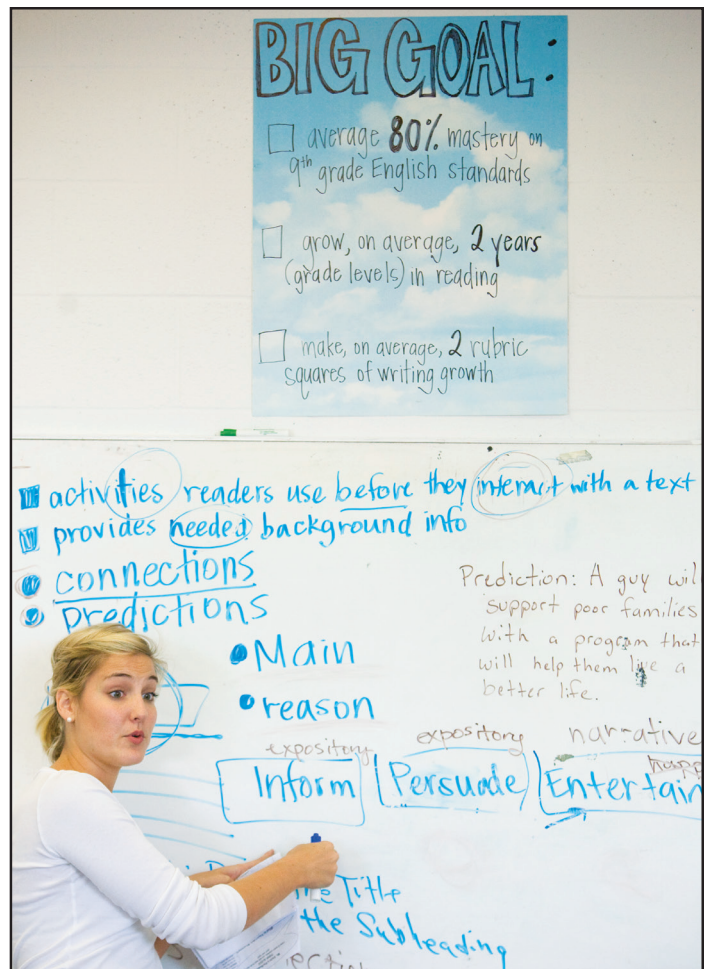 BIG GOAL:
average 80% mastery on
9th grade English standards
grow, on average, 2 years
(grade levels) in reading
make, on average, 2 rubric
squares of writing growth
activities readers use before they interact with a text
provides needed background info
connections
predictions
Prediction: A guy wil
support poor families
with a program that
will help them live a
better life.
Main
reason
expository expository narrative
Inform Persuade Entertain
Title
the Subheading